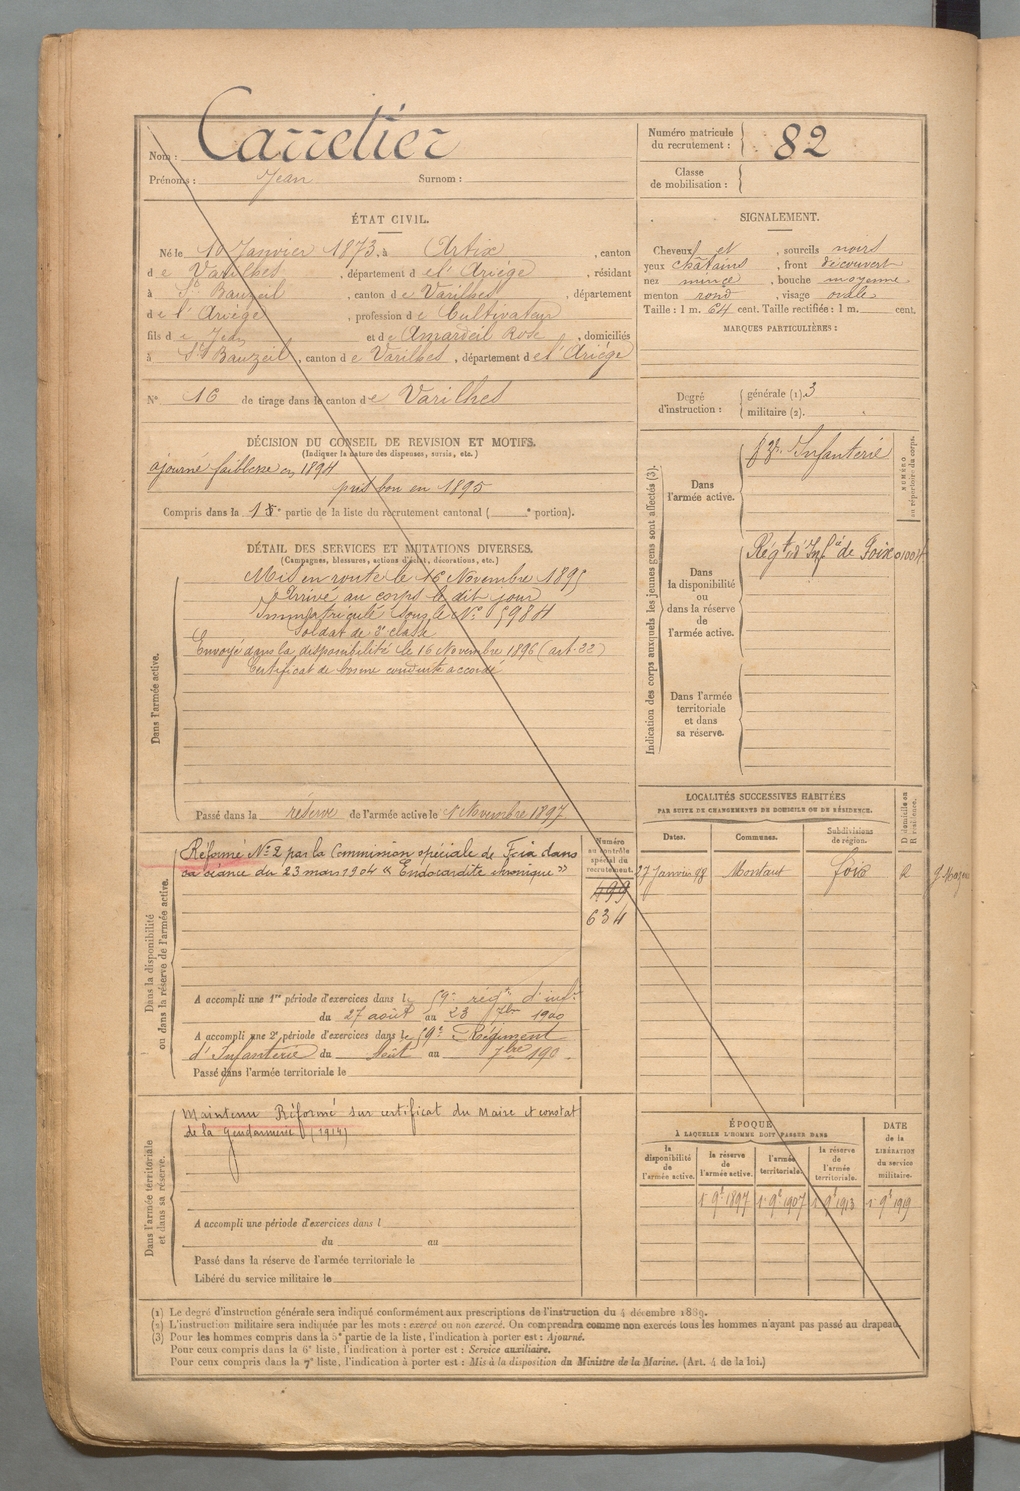 Nom : Carretier
Prénoms : Jean Surnom :
Numéro matricule
du recrutement : 82
Classe
de mobilisation :
ÉTAT CIVIL.
Né le 10 Janvier 1873, à Artix, canton
de Varilhes, département de l'Ariége, résidant
à St Bauzeil, canton de Varilhes, département
de l'Ariége, profession de Cultivateur
fils de Jean et de Amardeil Rose, domiciliés
à St Bauzeil, canton de Varilhes, département de l'Ariége
N° 16 de tirage dans le canton de Varilhes
SIGNALEMENT.
Cheveux et, sourcils noirs
yeux châtains, front découvert
nez mince, bouche moyenne
menton rond, visage ovale
Taille : 1 m. 64 cent. Taille rectifiée : 1 m. cent.
MARQUES PARTICULIÈRES :
Degré
d'instruction :
générale (1). 3
militaire (2).
DÉCISION DU CONSEIL DE REVISION ET MOTIFS.
(Indiquer la nature des dispenses, sursis, etc.)
ajourné faiblesse en 1894
pris bon en 1895
Compris dans la 1e partie de la liste du recrutement cantonal ( e portion).
DÉTAIL DES SERVICES ET MUTATIONS DIVERSES.
(Campagnes, blessures, actions d'éclat, décorations, etc.)
Dans l'armée active.
Mis en route le 16 Novembre 1895
Arrivé au corps le dit jour
Immatriculé sous le N° 5984
Soldat de 2e classe
Envoyé dans la disponibilité le 16 Novembre 1896 (art. 22)
Certificat de bonne conduite accordé
Passé dans la réserve de l'armée active le 1 Novembre 1897
Indication des corps auxquels les jeunes gens sont affectés (3).
Dans
l'armée active.
Infanterie
NUMÉRO
au répertoire du corps.
Dans
la disponibilité
ou
dans la réserve
de
l'armée active.
Régt d'Infie de Foix
Dans l'armée
territoriale
et dans
sa réserve.
LOCALITÉS SUCCESSIVES HABITÉES
PAR SUITE DE CHANGEMENTS DE DOMICILE OU DE RÉSIDENCE.
D domicile ou
R résidence.
Dates. Communes. Subdivisions
de région.
27 Janvier 98 Montaut Foix R
Dans la disponibilité
ou dans la réserve de l'armée active.
Réformé N° 2 par la Commission spéciale de Foix dans
sa séance du 23 mars 1904 « Endocardite chronique »
Numéro
au contrôle
spécial du
recrutement.
499
634
A accompli une 1re période d'exercices dans le 59e régt d'infie
du 27 août au 23 7bre 1900
A accompli une 2e période d'exercices dans le 59e Régiment
d'Infanterie du Août au 7bre 190
Passé dans l'armée territoriale le
Dans l'armée territoriale
et dans sa réserve.
Maintenu Réformé sur certificat du Maire et constat
de la Gendarmerie (1914)
A accompli une période d'exercices dans l
du au
Passé dans la réserve de l'armée territoriale le
Libéré du service militaire le
ÉPOQUE
À LAQUELLE L'HOMME DOIT PASSER DANS
DATE
de la
LIBÉRATION
du service
militaire.
la
disponibilité
de
l'armée active.
la réserve
de
l'armée active.
l'armée
territoriale.
la réserve
de
l'armée
territoriale.
1 9e 1897 1 9e 1907 1 9e 1913 1 9e 1919
(1) Le degré d'instruction générale sera indiqué conformément aux prescriptions de l'instruction du 4 décembre 1889.
(2) L'instruction militaire sera indiquée par les mots : exercé ou non exercé. On comprendra comme non exercés tous les hommes n'ayant pas passé au drapeau.
(3) Pour les hommes compris dans la 5e partie de la liste, l'indication à porter est : Ajourné.
Pour ceux compris dans la 6e liste, l'indication à porter est : Service auxiliaire.
Pour ceux compris dans la 7e liste, l'indication à porter est : Mis à la disposition du Ministre de la Marine. (Art. 4 de la loi.)